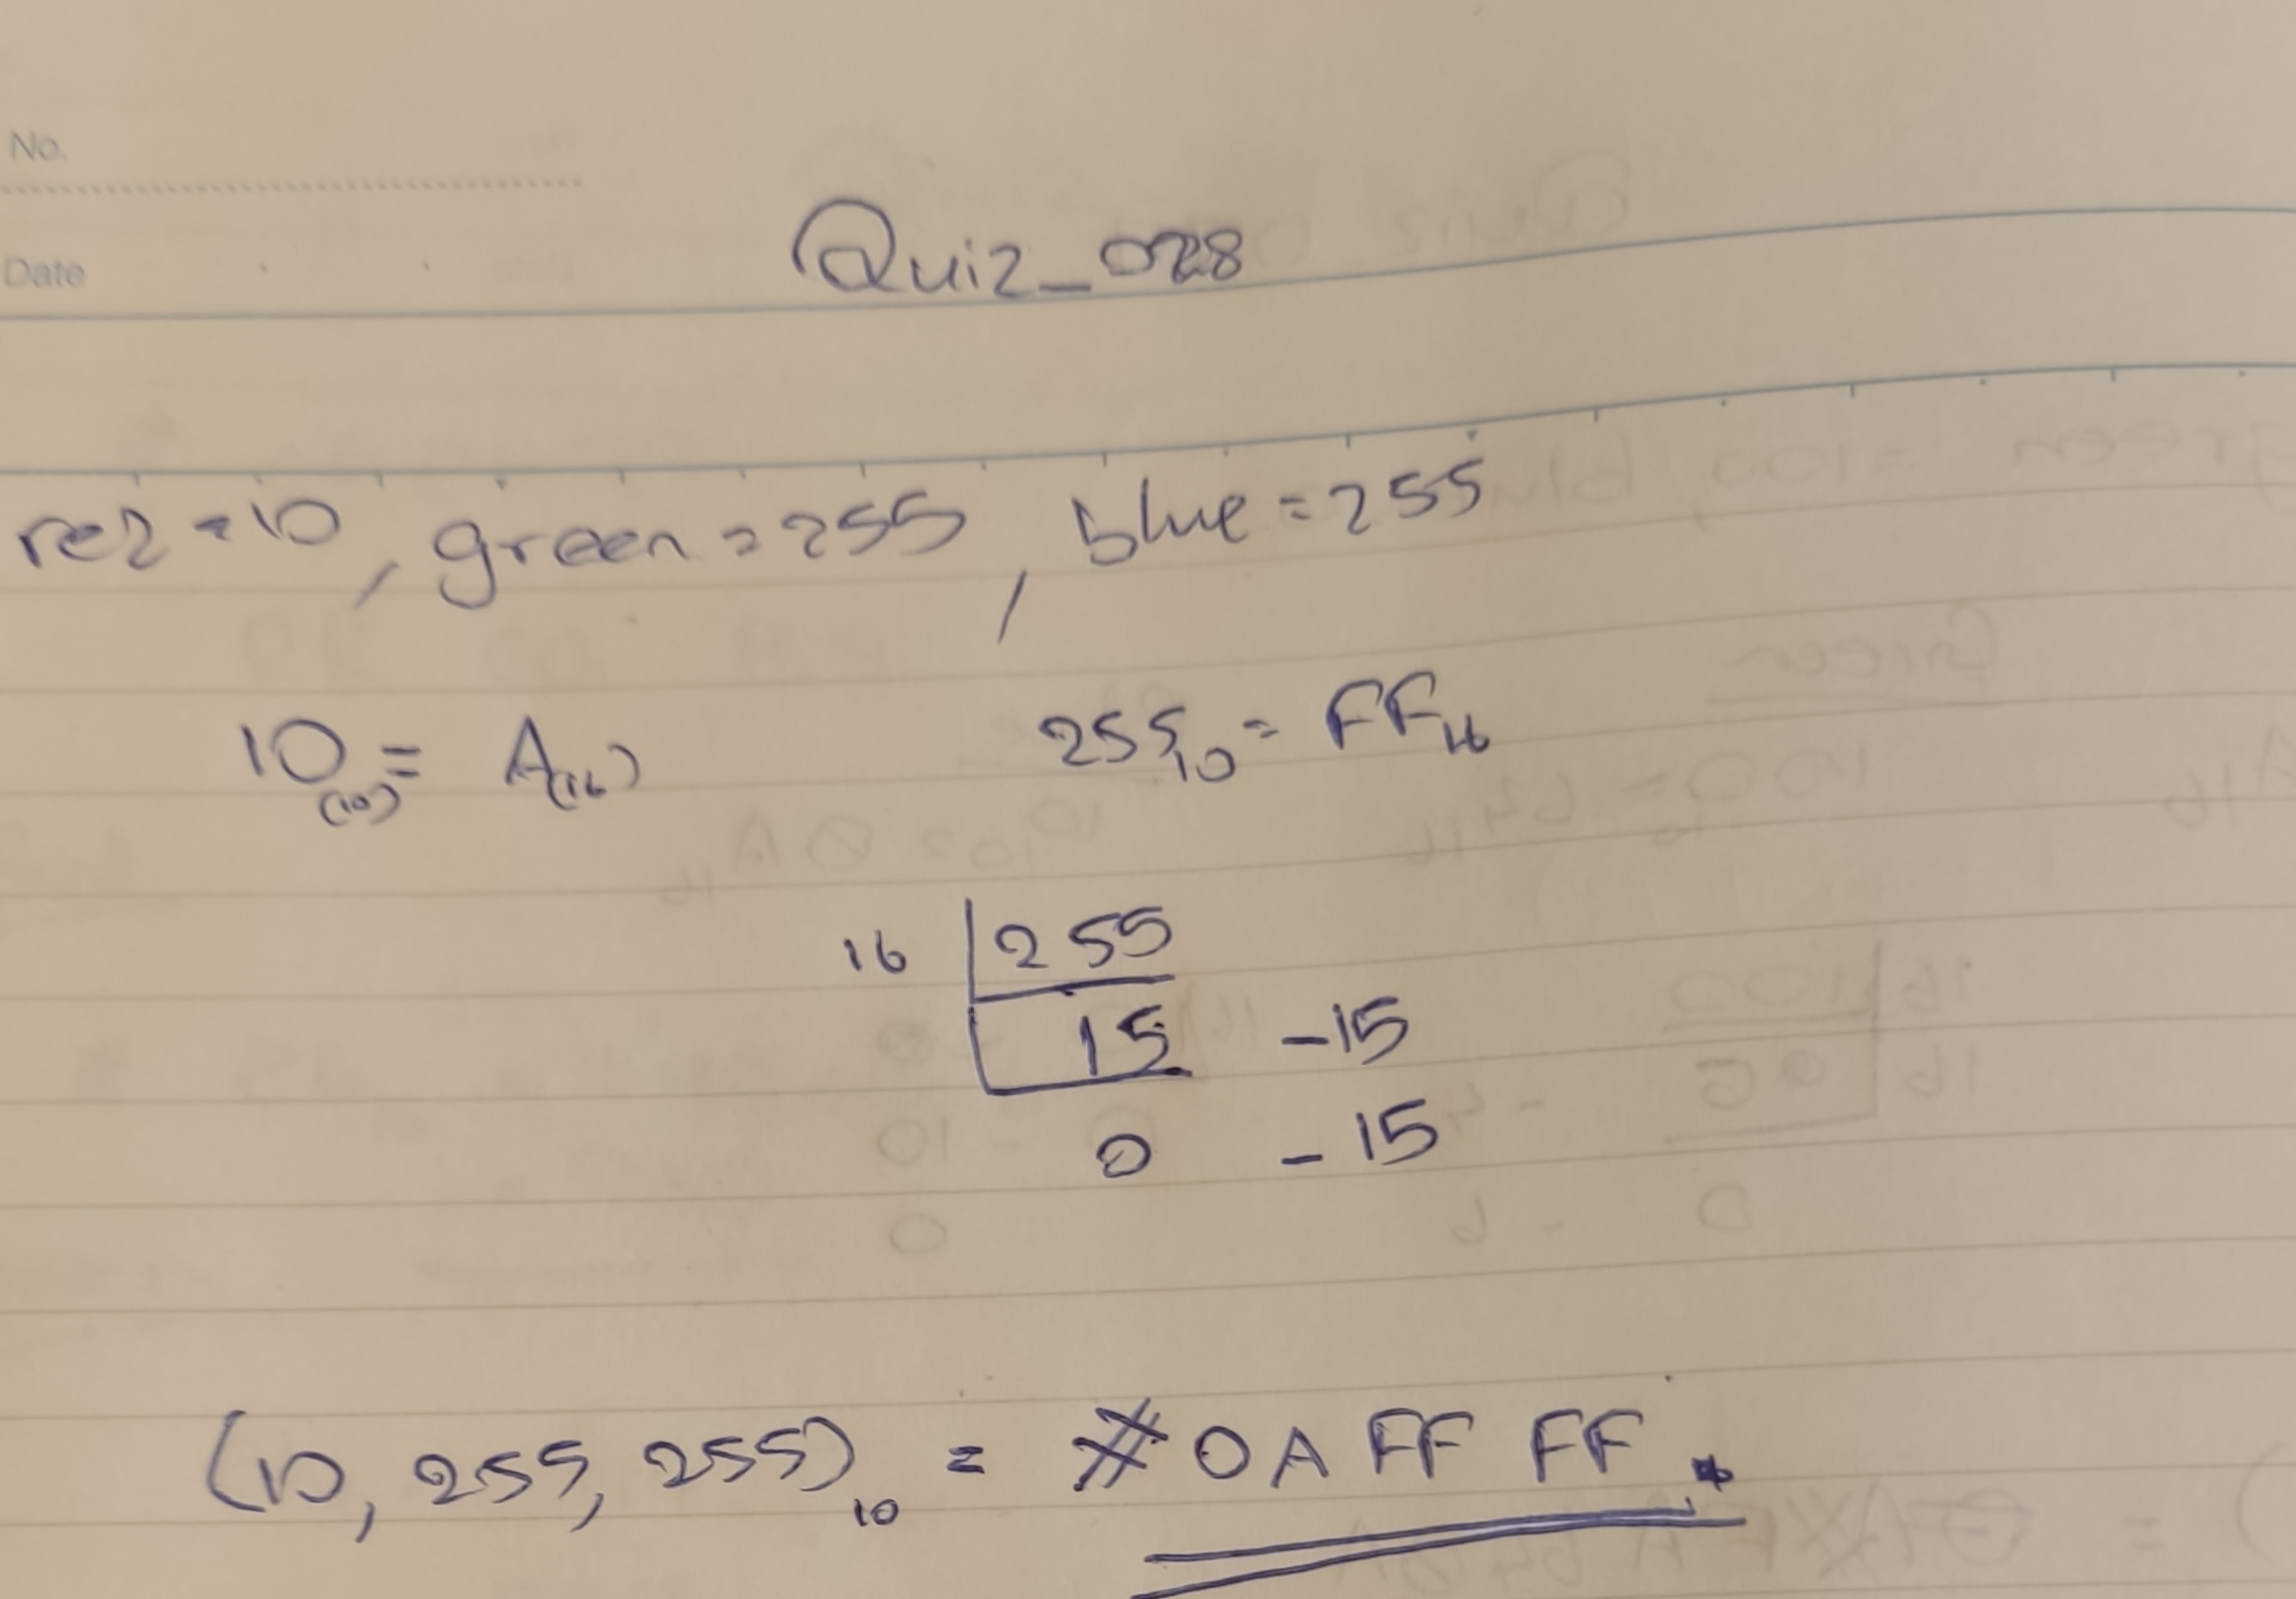 No.
Date
Quiz_028
red = 10, green = 255, blue = 255
10(10) = A(16) 255₁₀ = FF₁₆
16 255
15 - 15
0 - 15
(10, 255, 255)₁₀ = #0A FF FF